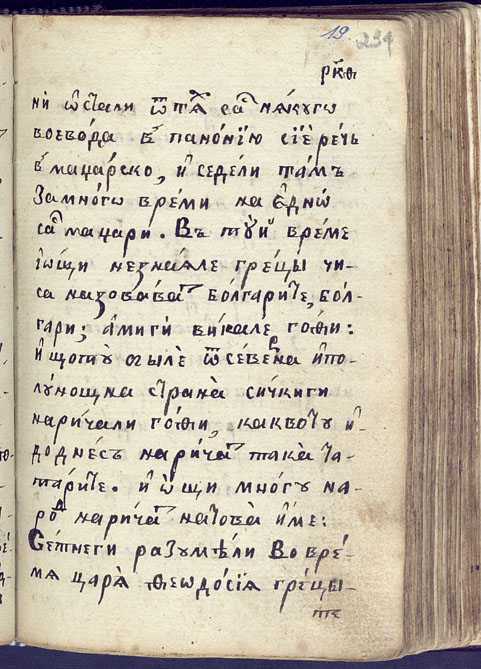 19.
239
рк҃ѳ
ни ѡстали ѿ тѧⷯ саⷭ҇ нѧкугѡ
воевода вⸯ панонїю сїе речь
вⸯ маџарско, и седели тамъ
за многѡ време на еднѡ
саⷭ҇ маџари. Въ туи време
їѡщи незнаѧле грецы чи-
са назоваватⸯ болгарите, бол-
гари, амиги викале гоѳи:
и щоту ѿ севеⷬ҇на и по-
лунощна страна сичкиги
наричали гоѳи, каквоту и-
доднесъ наричатⸯ така та-
тарите. и ѡщи многу на-
роⷣ҇ наричатⸯ натова име:
Сетнеги разумѣли во вре-
мѧ царѧ ѳеодосїѧ грецы-
те